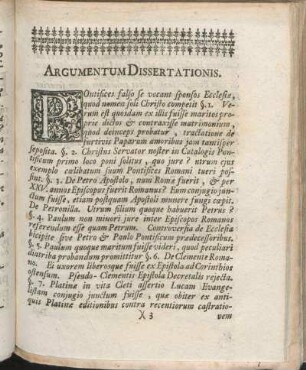 ARGUMENTUM DISSERTATIONIS.
POntifices falso se vocant sponsos Ecclesiæ,
quod nomen soli Christo competit §. 1. Ve-
rum est quosdam ex illis fuisse maritos pro-
prie dictos & contraxisse matrimonium,
quod deinceps probatur, tractatione de
furtivis Paparum amoribus jam tantisper
seposita. §. 2. Christus Servator noster in Catalogis Pon-
tificum primo loco poni solitus, quo jure? utrum ejus
exemplo cælibatum suum Pontifices Romani tueri pos-
sint. §. 3. De Petro Apostolo, num Romæ fuerit, & per
XXV. annos Episcopus fuerit Romanus? Eum conjugio jun-
ctum fuisse, etiam postquam Apostoli munere fungi cœpit.
De Petronilla. Utrum filium quoque habuerit Petrus?
§. 4. Paulum non minori jure inter Episcopos Romanos
referendum esse quam Petrum. Controversia de Ecclesia
bicipite sive Petro & Paulo Pontificum prædecessoribus.
§. 5. Paulum quoque maritum fuisse videri, quod peculiari
diatriba probandum promittitur §. 6. De Clemente Roma-
no. Ei uxorem liberosque fuisse ex Epistola ad Corinthios
ostensum. Pseudo-Clementis Epistola Decretalis rejecta.
§. 7. Platinæ in vita Cleti assertio Lucam Evange-
listam conjugio junctum fuisse, quæ obiter ex anti-
quis Platinæ editionibus contra recentiorum castratio-
X 3
nem